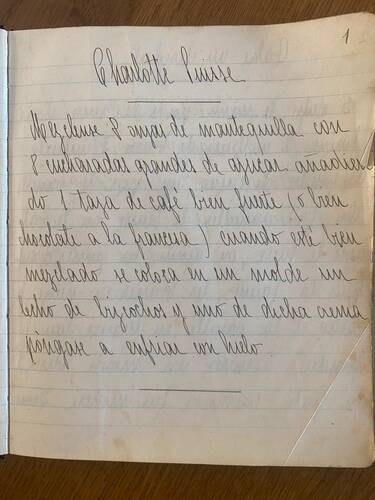 1
Charlotte Suisse
Mezclense 8 onzas de mantequilla con
8 cucharadas grandes de azucar añadien
do 1 taza de café bien fuerte (o bien
chocolate a la francesa) cuando esté bien
mezclado se coloca en un molde un
lecho de bizcochos y uno de dicha crema
póngase a enfriar con hielo.